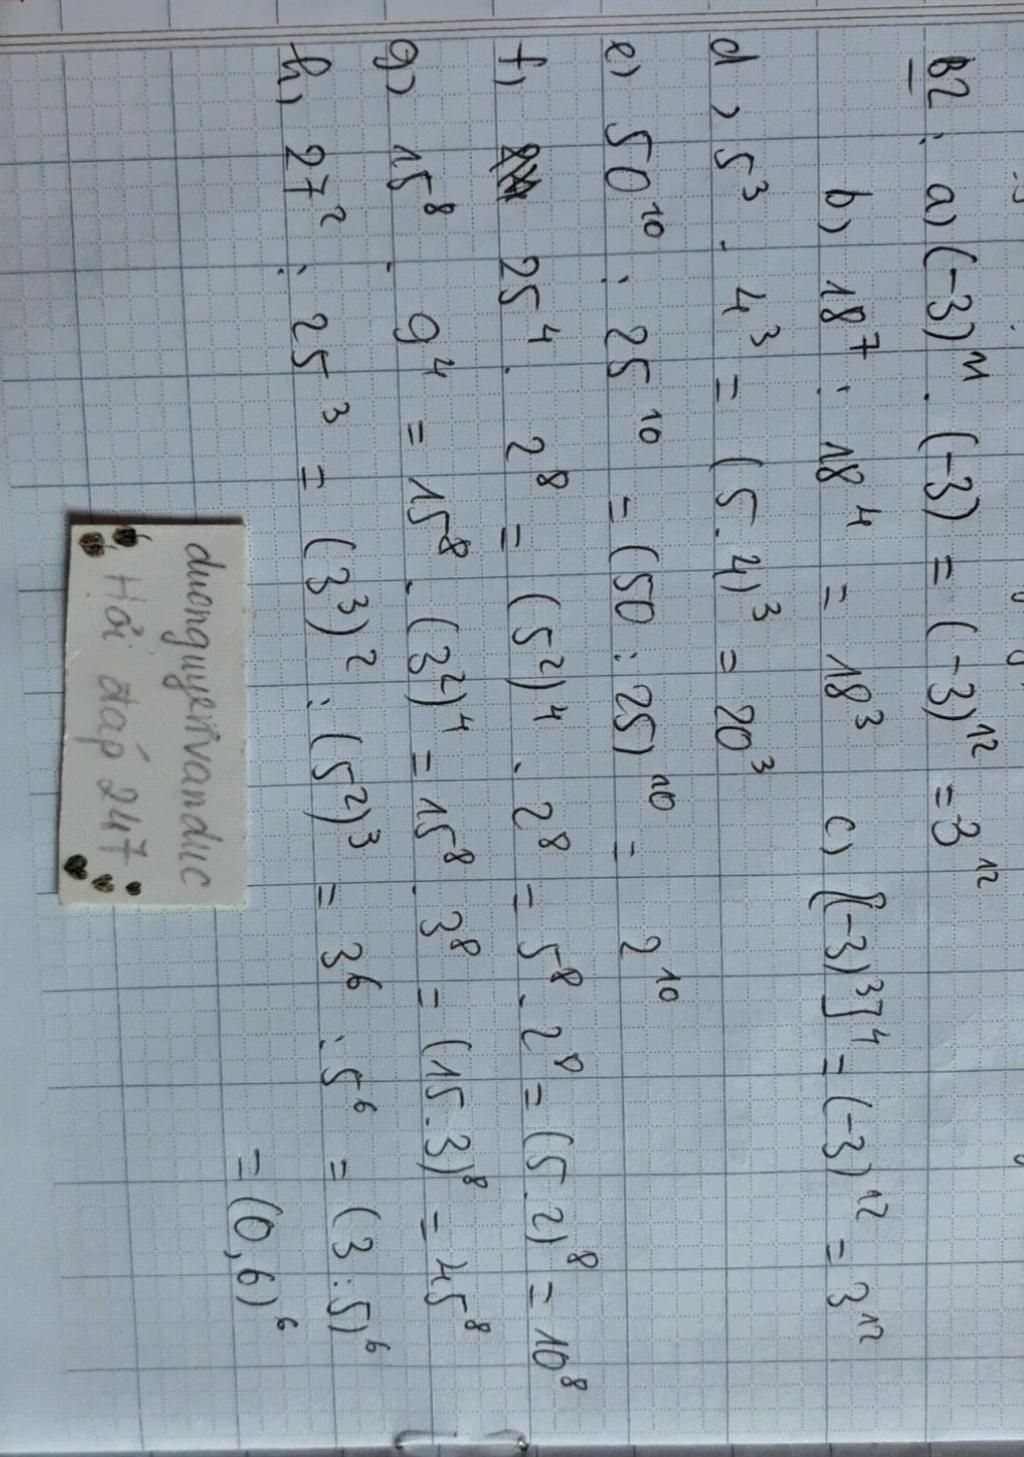 B2: a) (-3)¹¹ . (-3) = (-3)¹² = 3¹²
b) 18⁷ : 18⁴ = 18³ c) [(-3)³]⁴ = (-3)¹² = 3¹²
d) 5³ . 4³ = (5.4)³ = 20³
e) 50¹⁰ : 25¹⁰ = (50 : 25)¹⁰ = 2¹⁰
f) 25⁴ . 2⁸ = (5²)⁴ . 2⁸ = 5⁸ . 2⁸ = (5.2)⁸ = 10⁸
g) 15⁸ . 9⁴ = 15⁸ . (3²)⁴ = 15⁸ . 3⁸ = (15.3)⁸ = 45⁸
h) 27² : 25³ = (3³)² : (5²)³ = 3⁶ : 5⁶ = (3:5)⁶
= (0,6)⁶
duongnguyenvanduc
Hỏi đáp 247